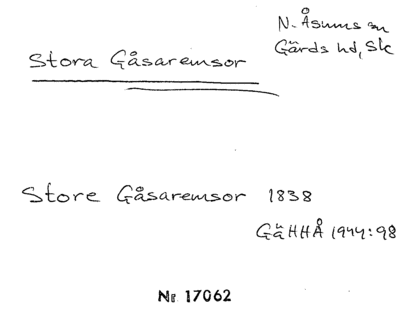 N. Åsums sn
Gärds hd, Sk
Stora Gåsaremsor
Store Gåsaremsor 1838
GäHHÅ 1944:98
Nr 17062